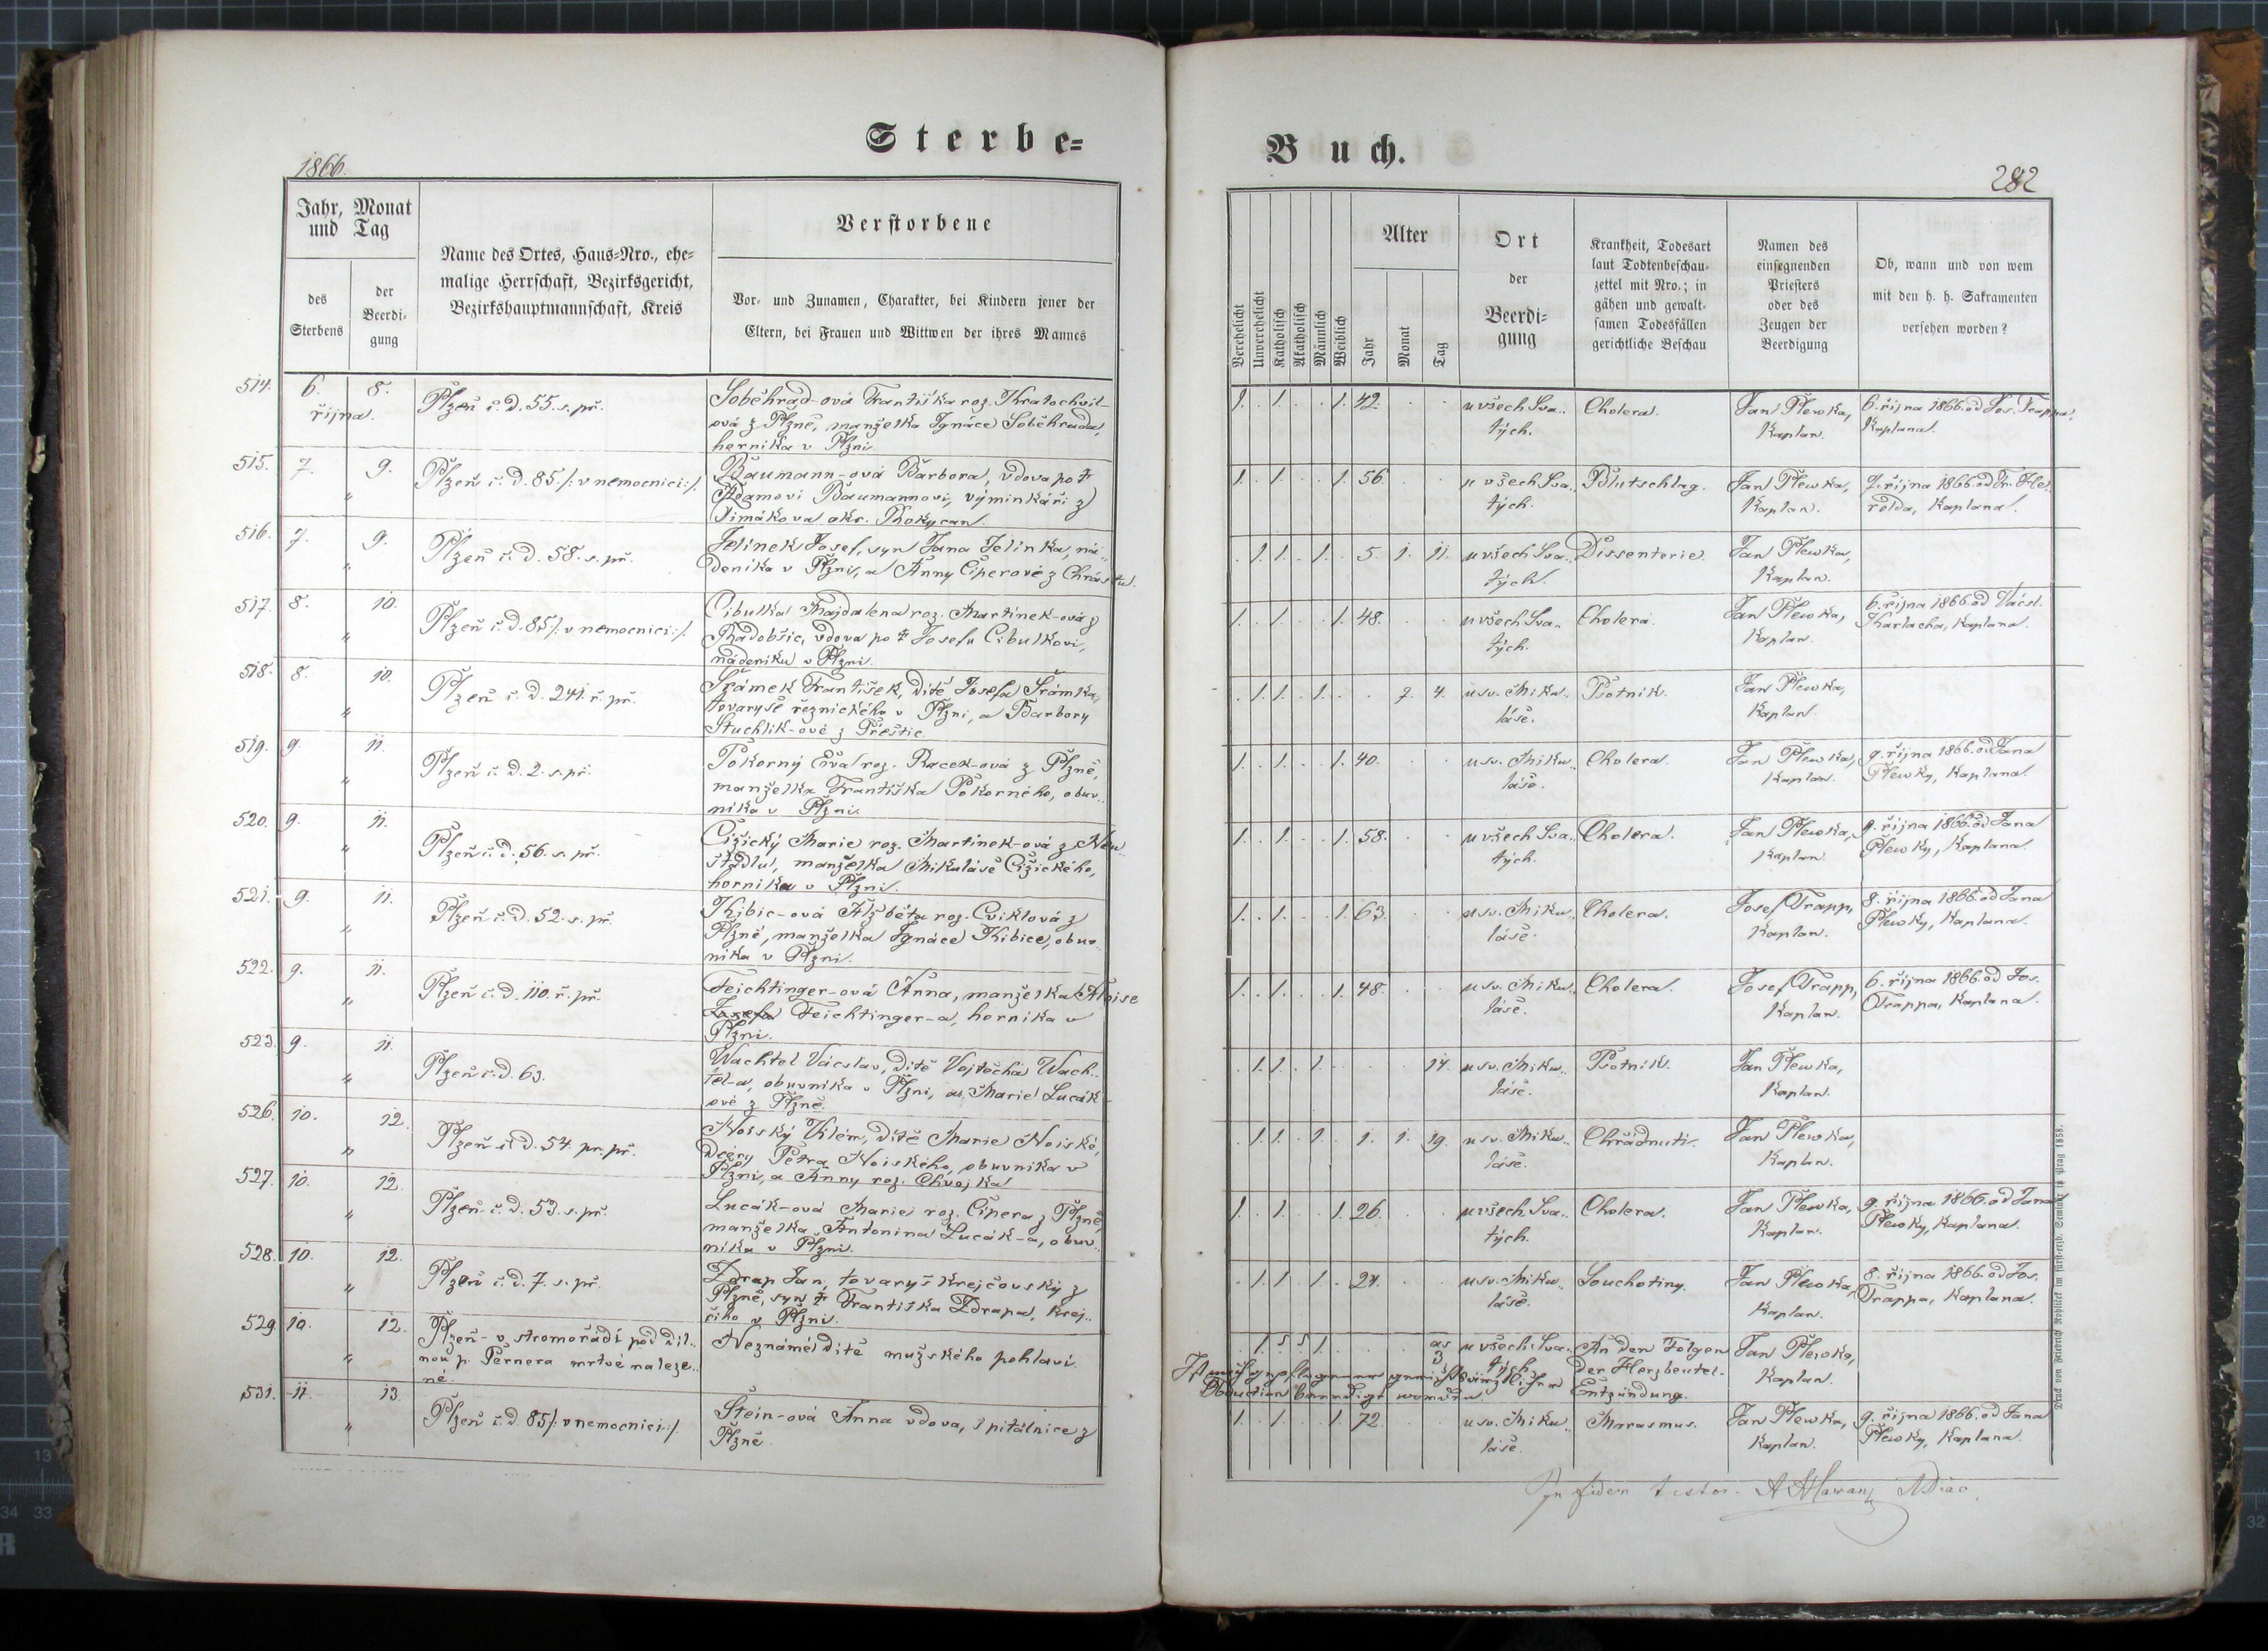 Sterbe-
1866.
Jahr, Monat
und Tag
des
Sterbens
der
Beerdi-
gung
Name des Ortes, Haus-Nro., ehe-
malige Herrschaft, Bezirksgericht,
Bezirkshauptmannschaft, Kreis
Verstorbene
Vor- und Zunamen, Charakter, bei Kindern jener der
Eltern, bei Frauen und Wittwen der ihres Mannes
514. 6. 8. Plzeň č. d. 55. s. př. Soběhrad-ová Františka roz. Kratochvil-
října. ová z Plzně, manželka Ignáce Soběhrada,
horníka v Plzni.
515. 7. 9. Plzeň č. d. 85 /: v nemocnici :/. Baumann-ová Barbora, vdova po †
„ Adamovi Baumannovi, výminkáři z
Timákova okr. Rokycan.
516. 7. 9. Plzeň č. d. 58. s. př. Jelínek Josef, syn Jana Jelínka, ná-
„ deníka v Plzni, a Anny Čiperové z Chrástu.
517. 8. 10. Plzeň č. d. 85 /: v nemocnici :/. Cibulka Majdalena roz. Martínek-ová z
„ Radobšic, vdova po † Josefu Cibulkovi,
nádeníku v Plzni.
518. 8. 10. Plzeň č. d. 241. ř. př. Šrámek František, dítě Josefa Šrámka,
„ tovaryše řeznického v Plzni, a Barbory
Stuchlík-ové z Přeštic.
519. 9. 11. Plzeň č. d. 2. s. př. Pokorný Eva roz. Racek-ová z Plzně,
„ manželka Františka Pokorného, obuv-
níka v Plzni.
520. 9. 11. Plzeň č. d. 56. s. př. Čižický Marie roz. Martínek-ová z Neu-
„ štádlu, manželka Mikuláše Čižického,
horníka v Plzni.
521. 9. 11. Plzeň č. d. 52. s. př. Kibic-ová Alžběta roz. Cviklová z
„ Plzně, manželka Ignáce Kibice, obuv-
níka v Plzni.
522. 9. 11. Plzeň č. d. 110. ř. př. Feichtinger-ová Anna, manželka Aloise
„ Josefa Feichtinger-a, horníka v
Plzni.
523. 9. 11. Plzeň č. d. 63. Wachtel Václav, dítě Vojtěcha Wach-
„ tel-a, obuvníka v Plzni, a Marie Lucák-
ové z Plzně.
526. 10. 12. Plzeň č. d. 54. pr. př. Noiský Vilém, dítě Marie Noiské,
„ dcery Petra Noiského, obuvníka v
Plzni, a Anny roz. Chvojka
527. 10. 12. Plzeň č. d. 53. s. př. Lucák-ová Marie roz. Čipera z Plzně,
„ manželka Antonína Lucák-a, obuv-
níka v Plzni.
528. 10. 12. Plzeň č. d. 7. s. př. Zdrap Jan, tovaryš krejčovský z
„ Plzně, syn † Františka Zdrapa, krej-
čího v Plzni.
529. 10. 12. Plzeň - v stromořadí pod díl- Neznámé dítě mužského pohlaví.
„ nou p. Pernera mrtvé naleze-
né.
531. 11. 13. Plzeň č. d. 85 /: v nemocnici :/. Stein-ová Anna vdova, špitálnice z
„ Plzně.
Buch.
282
Verehelicht
Unverehelicht
Katholisch
Akatholisch
Männlich
Weiblich
Alter
Jahr
Monat
Tag
Ort
der
Beerdi-
gung
Krankheit, Todesart
laut Todtenbeschau-
zettel mit Nro.; in
gähen und gewalt-
samen Todesfällen
gerichtliche Beschau
Namen des
einsegnenden
Priesters
oder des
Zeugen der
Beerdigung
Ob, wann und von wem
mit den h. h. Sakramenten
versehen worden?
1. 1. 1. 42. u všech Sva- Cholera. Jan Plewka, 6. října 1866. od Jos. Trappa,
tých. Kaplan. Kaplana.
1. 1. 1. 56. u všech Sva- Blutschlag. Jan Plewka, 7. října 1866. od Fr. He-
tých. Kaplan. rolda, Kaplana.
1. 1. 1. 5. 1. 11. u všech Sva- Dissenterie. Jan Plewka,
tých. Kaplan.
1. 1. 1. 48. u všech Sva- Cholera. Jan Plewka, 6. října 1866. od Vácsl.
tých. Kaplan. Kaplana.
1. 1. 1. 7. 4. u sv. Miku- Psotník. Jan Plewka,
láše. Kaplan.
1. 1. 1. 40. u sv. Miku- Cholera. Jan Plewka, 9. října 1866. od Jana
láše. Kaplan. Plewky, Kaplana.
1. 1. 1. 58. u všech Sva- Cholera. Jan Plewka, 9. října 1866. od Jana
tých. Kaplan. Plewky, Kaplana.
1. 1. 1. 63. u sv. Miku- Cholera. Josef Trapp, 8. října 1866. od Jana
láše. Kaplan. Plewky, Kaplana.
1. 1. 1. 48. u sv. Miku- Cholera. Josef Trapp, 6. října 1866. od Jos.
láše. Kaplan. Trappa, Kaplana.
1. 1. 1. 14. u sv. Miku- Psotník. Jan Plewka,
láše. Kaplan.
1. 1. 1. 1. 1. 19. u sv. Miku- Chřadnutí. Jan Plewka,
láše. Kaplan.
1. 1. 1. 26. u všech Sva- Cholera. Jan Plewka, 9. října 1866. od Jana
tých. Kaplan. Plewky, Kaplana.
1. 1. 1. 24. u sv. Miku- Souchotiny. Jan Plewka, 8. října 1866. od Jos.
láše. Kaplan. Trappa, Kaplana.
1. 1. as u všech Sva- An den Folgen Jan Plewka,
3 tých. der Herzbeutel- Kaplan.
Entzündung.
1. 1. 1. 72. u sv. Miku- Marasmus. Jan Plewka, 9. října 1866. od Jana
láše. Kaplan. Plewky, Kaplana.
In fidem testor.
Druck von Friedrich Rohlicek im fürst-erzb. Seminär in Prag 1858.